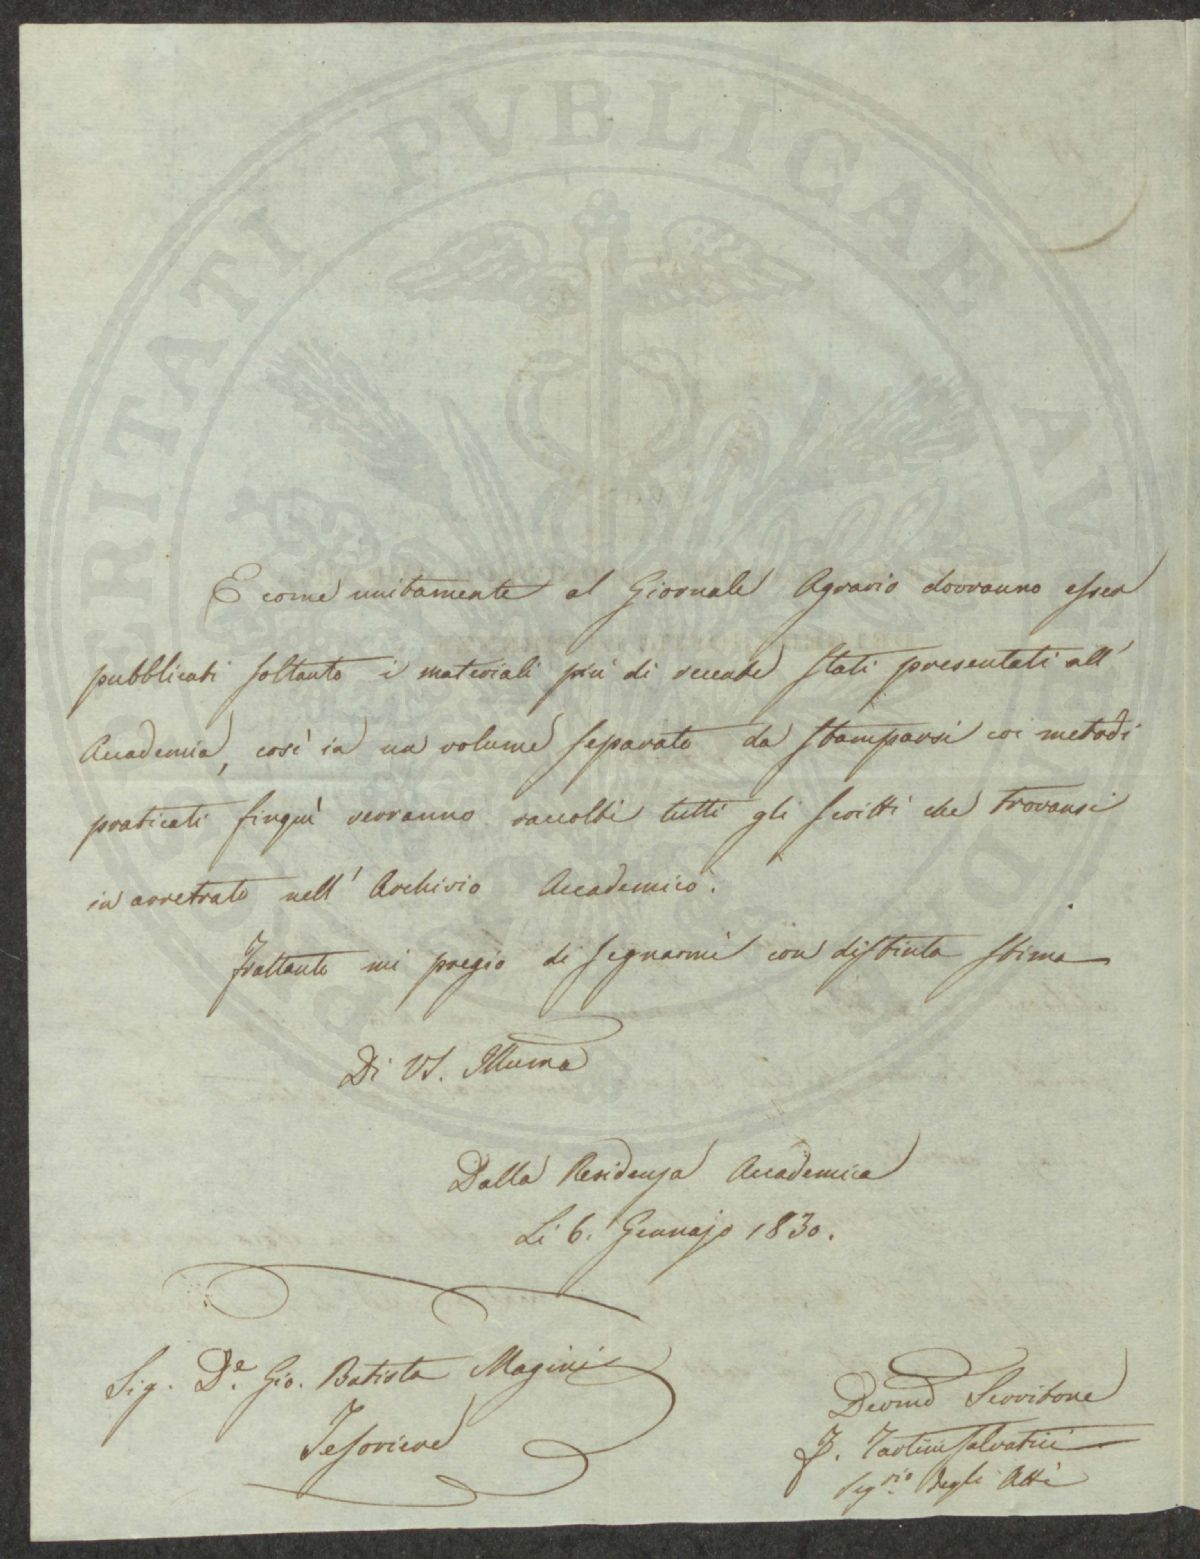 PROSPERITATI PUBLICAE AUGENDAE
E come unitamente al Giornale Agrario dovranno esser
pubblicati soltanto i materiali più di recente stati presentati all'
Accademia, così in un volume separato da stamparsi coi metodi
praticati finquì verranno raccolti tutti gli scritti che trovansi
in arretrato nell' Archivio Accademico.
Frattanto mi pregio di segnarmi con distinta stima
Di VS. Illuma
Dalla Residenza Accademica
Li 6. Gennajo 1830.
Sig. De. Gio. Batista Magini
Tesoriere
Devmo Servitore
F. Tartini Salvatici
Segrio. degli Atti